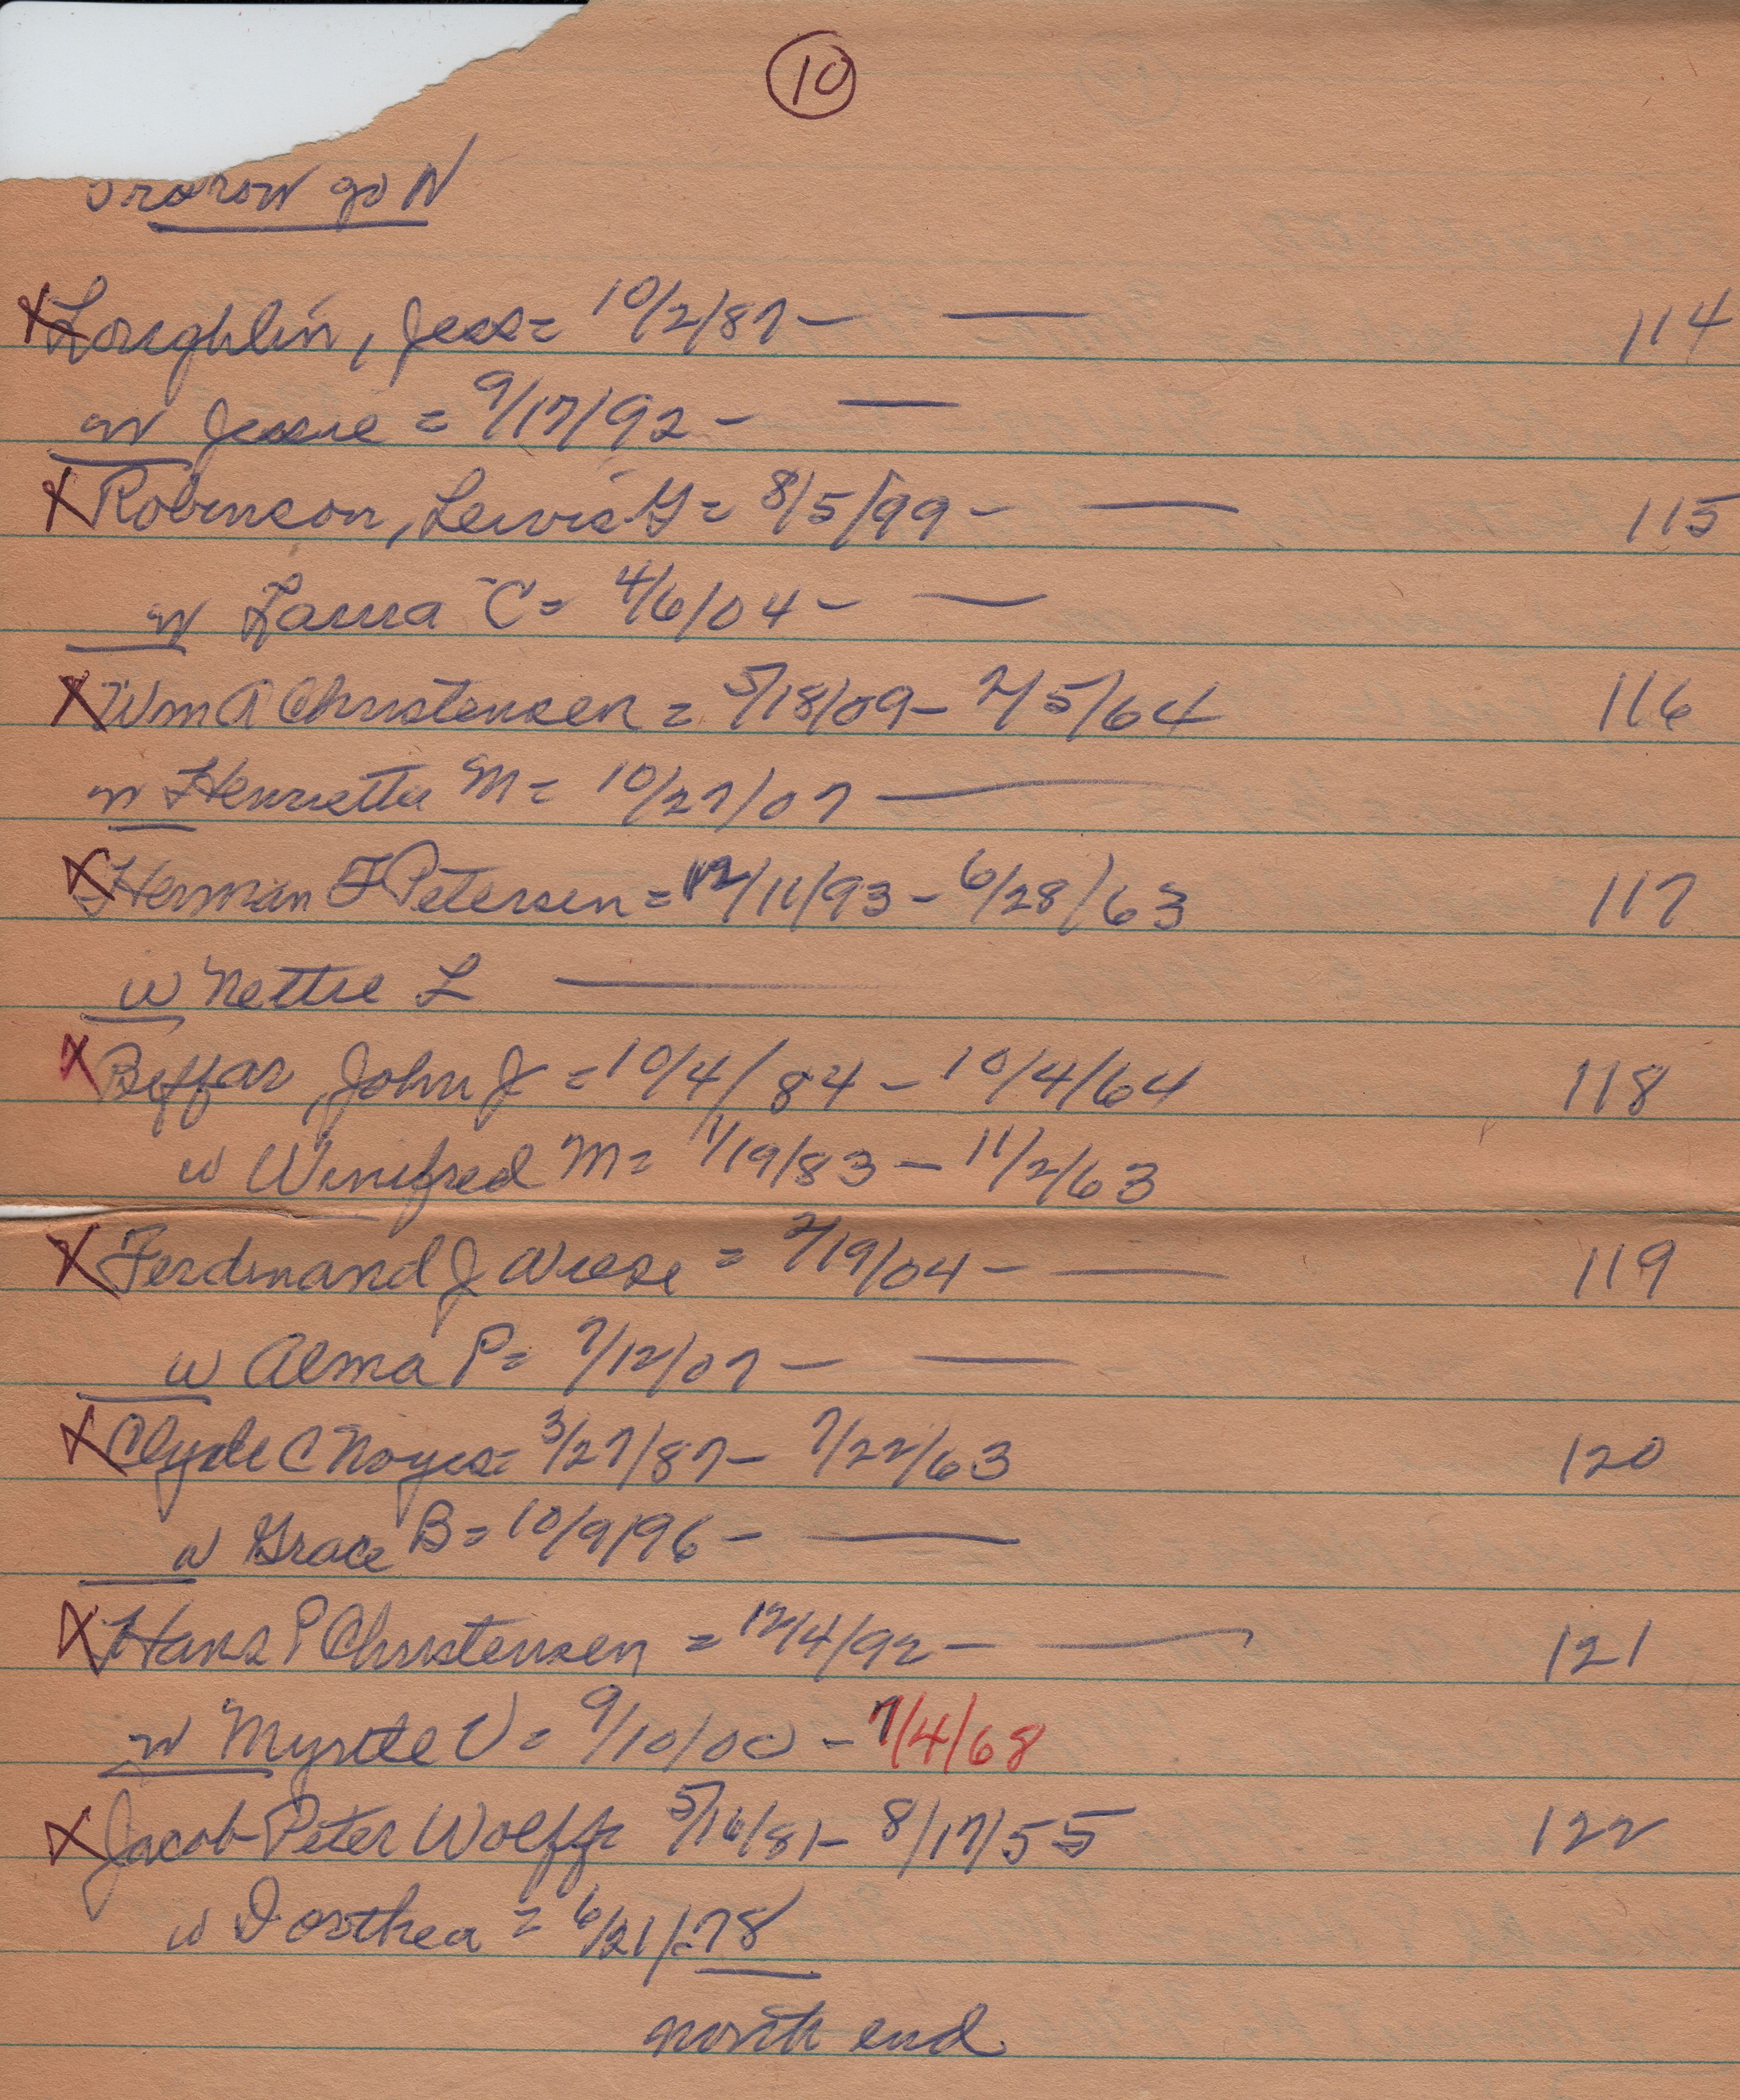 10
row go N
X Loughlin, Jess = 10/2/87 – — 114
w Jessie = 9/17/92 – —
X Robinson, Lewis G = 8/5/99 – — 115
w Laura C = 4/6/04 – —
X Wm A Christensen = 5/18/09 – 2/5/64 116
w Henrietta M = 10/27/07 —
X Herman F Petersen = 12/11/93 – 6/28/63 117
w Nettie L —
X Beffar, John J = 10/4/84 – 10/4/64 118
w Winifred M = 11/19/83 – 11/2/63
X Ferdinand J Wiese = 2/19/04 – — 119
w Alma P = 7/12/07 – —
X Clyde C Noyes = 3/27/87 – 7/22/63 120
w Grace B = 10/9/96 – —
X Hans P Christensen = 12/4/92 – — 121
w Myrtle V = 9/10/00 – 7/4/68
X Jacob Peter Wolff = 5/16/81 – 8/17/55 122
w Dorthea = 6/21/78
north end